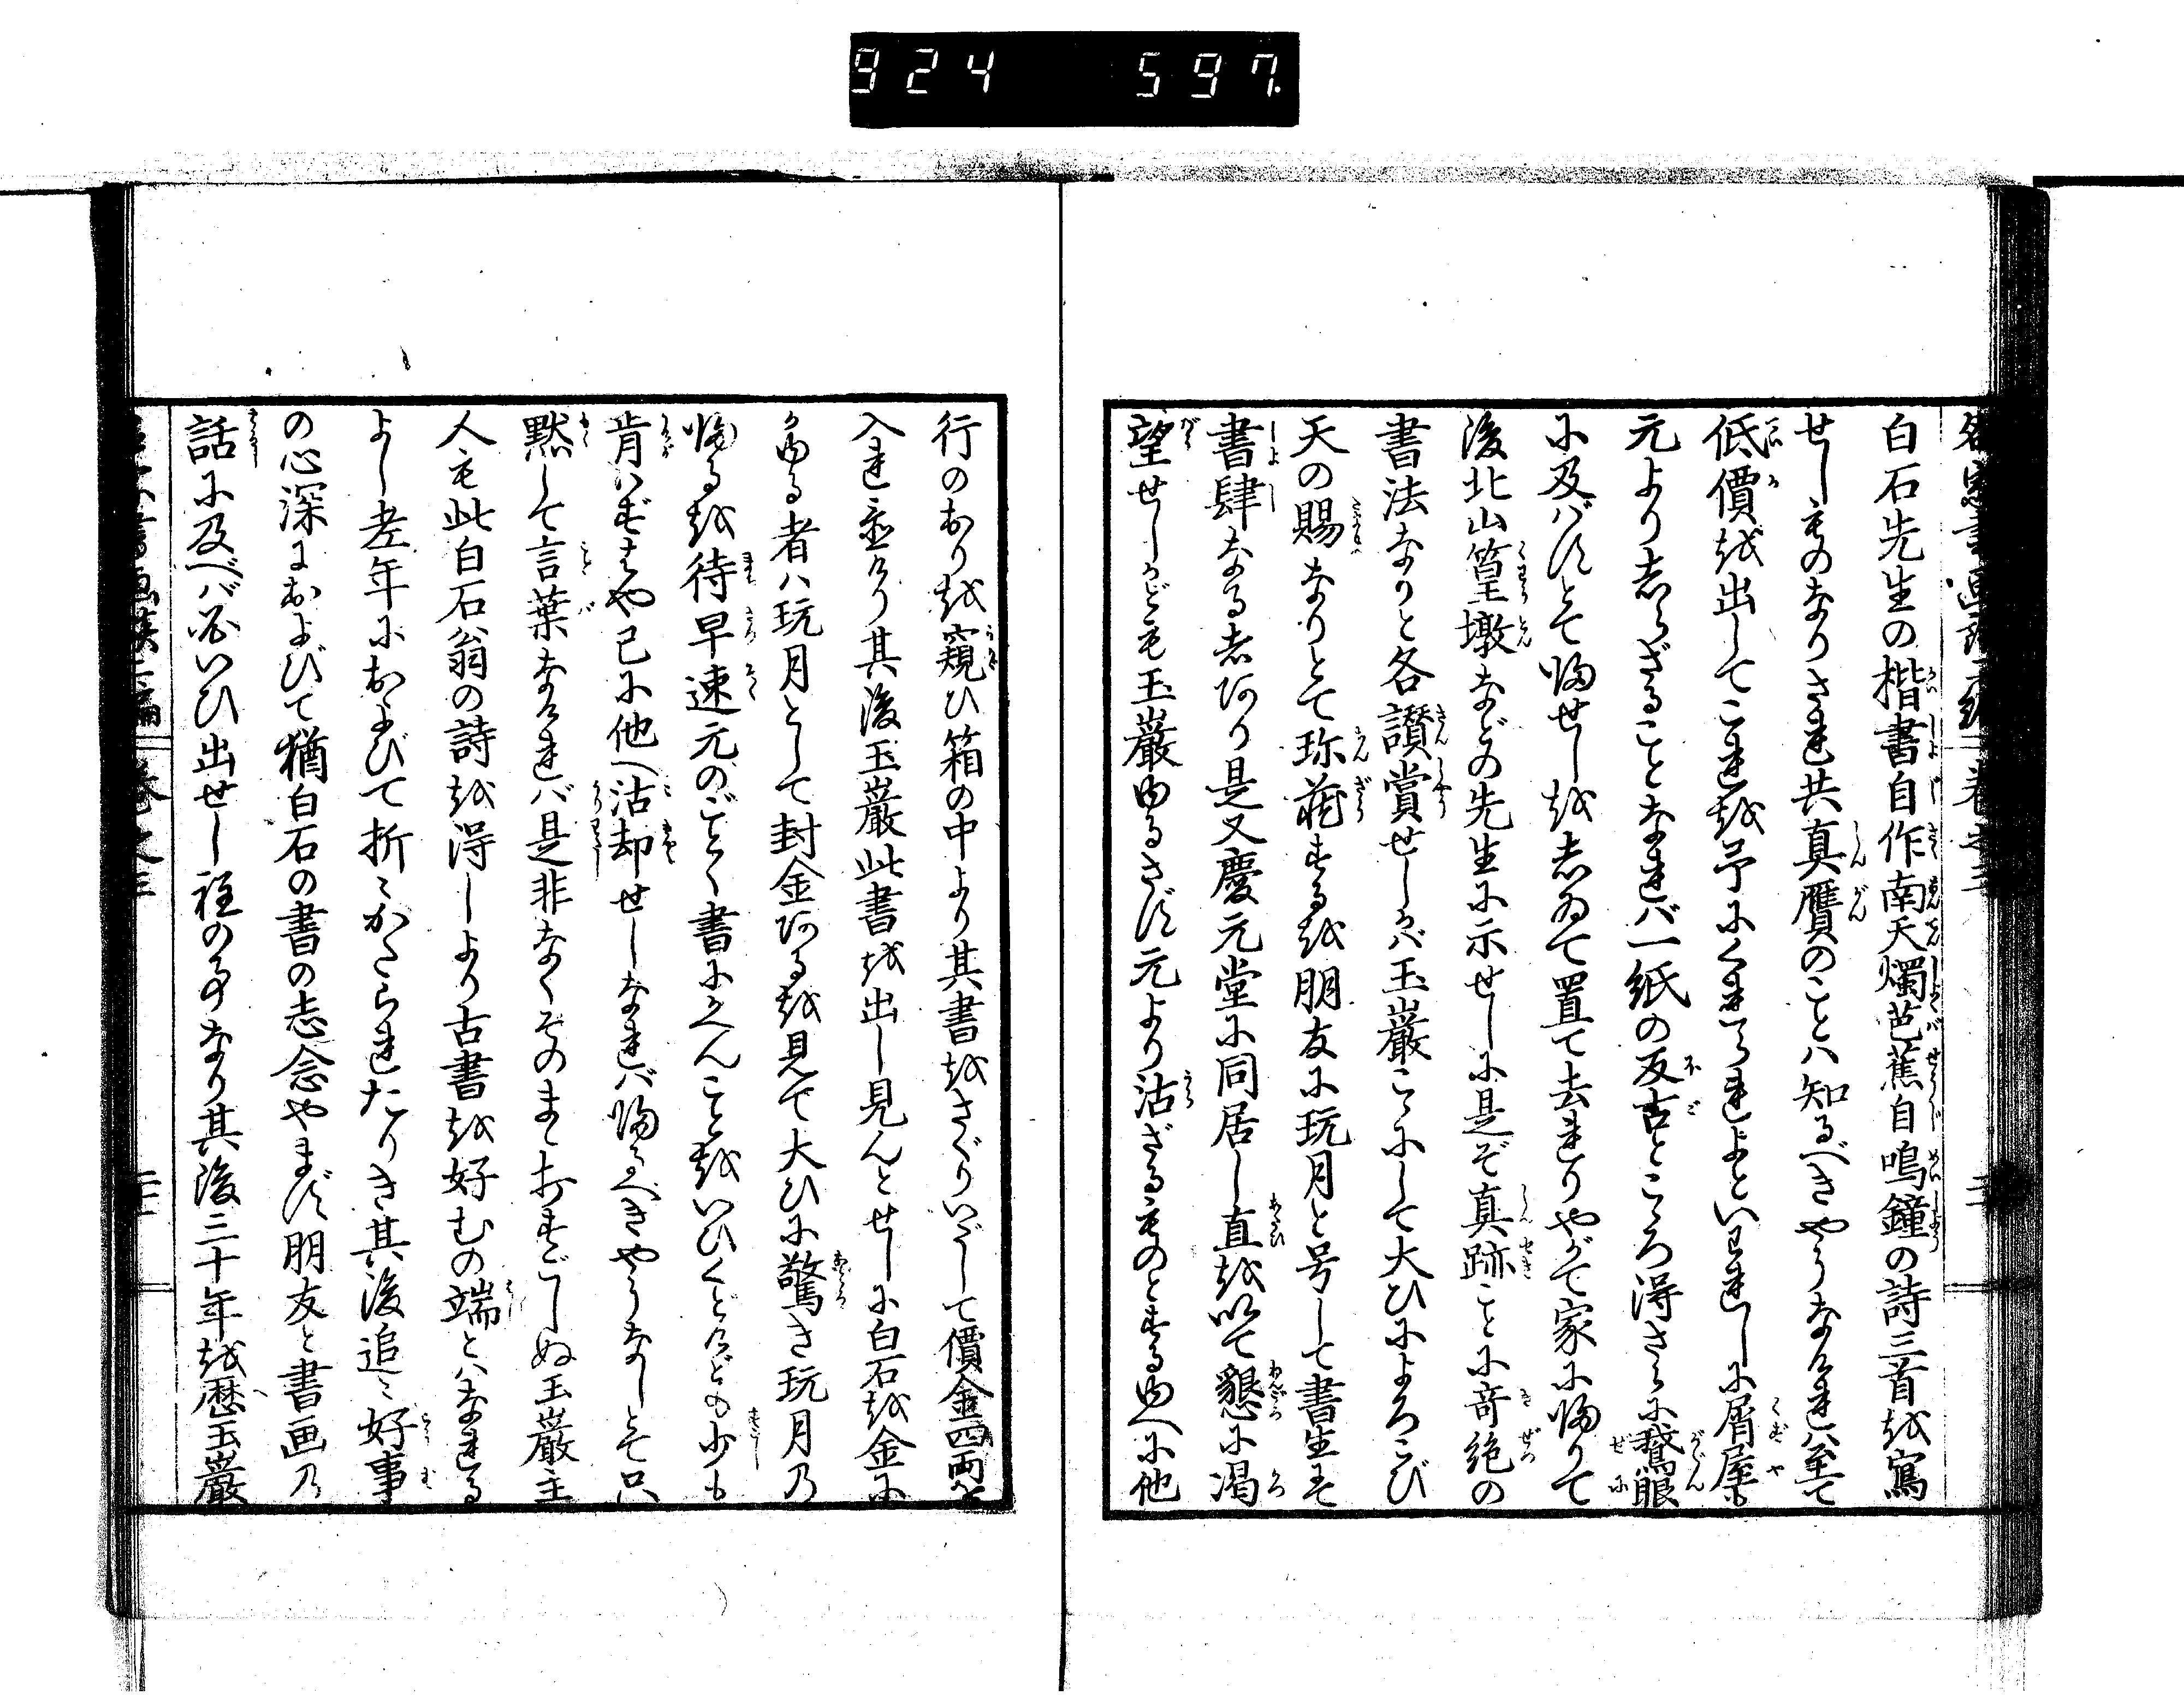 924 597.
白石先生の楷書自作南天燭芭蕉自鳴鐘の詩三首を寫
せしものなりされ共真贋のことハ知るべきやうなけれハ至て
低價を出してこれを予にくれられよといはれしに屑屋も
元よりしらざることなれバ一紙の反古ところ得さらに鵞眼
に及バずとて帰せしをしゐて置て去れりやがて家に帰りて
後北山篁墩などの先生に示せしに是ぞ真跡ことに奇絶の
書法なりと各讃賞せしかバ玉巌こゝにして大ひによろこび
天の賜なりとて珎蔵するを朋友に玩月と号して書生そ
書肆なる者あり是又慶元堂に同居し直を以て懇に渇
望せしかども玉巌ゆるさず元より沽ざるものとするゆへに他
行のおりを窺ひ箱の中より其書をさぐりいだして價金四両を
入れ置けり其後玉巌此書を出し見んとせしに白石を金に
かゆる者ハ玩月として封金あるを見て大ひに驚き玩月の
帰るを待早速元のごとく書にかへんことをいひくどけども少も
肯ハずはや已に他へ沽却せしなれバ帰るべきやうなしとて只
黙して言葉なけれバ是非なくそのまゝ打すごしぬ玉巌主
人も此白石翁の詩を得しより古書を好むの端とハなれる
よし老年におよびて折々かたられたりき其後追々好事
の心深におよびて猶白石の書の志念やまず朋友と書画の
話に及べバ必いひ出せし程の事なり其後三十年を歴玉巌